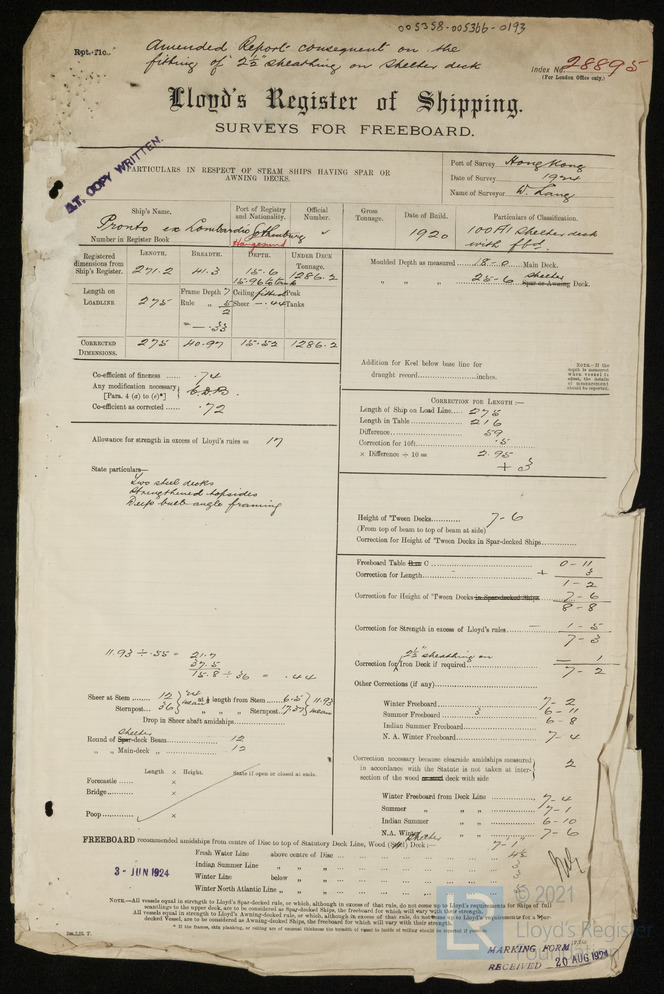 005358-005366-0193
Rpt. 11c.
Amended Report consequent on the
fitting of 2½" sheathing on shelter deck
Index No. 28895
(For London Office only.)
Lloyd's Register of Shipping.
SURVEYS FOR FREEBOARD.
LT. COPY WRITTEN.
PARTICULARS IN RESPECT OF STEAM SHIPS HAVING SPAR OR
AWNING DECKS.
Port of Survey Hong Kong
Date of Survey 1924
Name of Surveyor W. Lang
Ship's Name.
Port of Registry and Nationality.
Official Number.
Gross Tonnage.
Date of Build.
Particulars of Classification.
Pronto ex Lombardia
Gothenburg
Haugesund
1920
100A1 Shelter deck
with fbd.
Number in Register Book
Registered dimensions from Ship's Register.
LENGTH. BREADTH. DEPTH. UNDER DECK TONNAGE.
271.2 41.3 15.6 1286.2
Length on LOADLINE. 275
Frame Depth 7
Rule " 5
2
= - .33
Ceiling fitted
Sheer - .44
Peak Tanks
CORRECTED DIMENSIONS. 275 40.97 15.52 1286.2
Moulded Depth as measured 18-0 Main Deck.
" " " 25-6 shelter Spar or Awning Deck.
Addition for Keel below base line for
draught record inches.
Co-efficient of fineness .74
Any modification necessary [Para. 4 (a) to (e)*] C.D.B.
Co-efficient as corrected .72
CORRECTION FOR LENGTH:—
Length of Ship on Load Line 275
Length in Table 216
Difference 59
Correction for 10ft. .5
× Difference ÷ 10 = 2.95
+ 3
Allowance for strength in excess of Lloyd's rules = 17
State particulars—
Two steel decks
Strengthened topsides
Deep built angle framing
Height of 'Tween Decks 7-6
(From top of beam to top of beam at side)
Correction for Height of 'Tween Decks in Spar-decked Ships
Freeboard Table C 0-11
Correction for Length + 3
1-2
Correction for Height of 'Tween Decks in Spar-decked Ships 7-6
8-8
Correction for Strength in excess of Lloyd's rules - 1-5
7-3
2½" sheathing on
Correction for Iron Deck if required - 1
7-2
11.93 ÷ .55 = 21.7
37.5
15.8 ÷ 36 = .44
Sheer at Stem 12
Sternpost 36
24 mean
at ⅛ length from Stem 6.5
" " " Sternpost 17.37
11.93 mean
Drop in Sheer abaft amidships
Round of shelter Spar-deck Beam 12
" " Main-deck " 12
Other Corrections (if any)
Winter Freeboard 7-2
Summer Freeboard 3 6-11
Indian Summer Freeboard 6-8
N. A. Winter Freeboard 7-4
Length × Height. State if open or closed at ends.
Forecastle ×
Bridge ×
Poop ×
Correction necessary because clearside amidships measured
in accordance with the Statute is not taken at inter-
section of the wood deck with side 2
Winter Freeboard from Deck Line 7-4
Summer " " 7-1
Indian Summer " " 6-10
N.A. Winter " " 7-6
FREEBOARD recommended amidships from centre of Disc to top of Statutory Deck Line, Wood shelter Deck:— 7-1
Fresh Water Line above centre of Disc 4½
Indian Summer Line " " 3
Winter Line below " 3
Winter North Atlantic Line " "
3 - JUN 1924
NOTE.—All vessels equal in strength to Lloyd's Spar-decked rule, or which, although in excess of that rule, do not come up to Lloyd's requirements for Ships of full
scantlings to the upper deck, are to be considered as Spar-decked Ships, the freeboard for which will vary with their strength.
All vessels equal in strength to Lloyd's Awning-decked rule, or which, although in excess of that rule, do not come up to Lloyd's requirements for a Spar-
decked Vessel, are to be considered as Awning-decked Ships, the freeboard for which will vary with their strength.
MARKING FORM
RECEIVED 20 AUG 1924
LR
© 2021
Lloyd's Register
Foundation